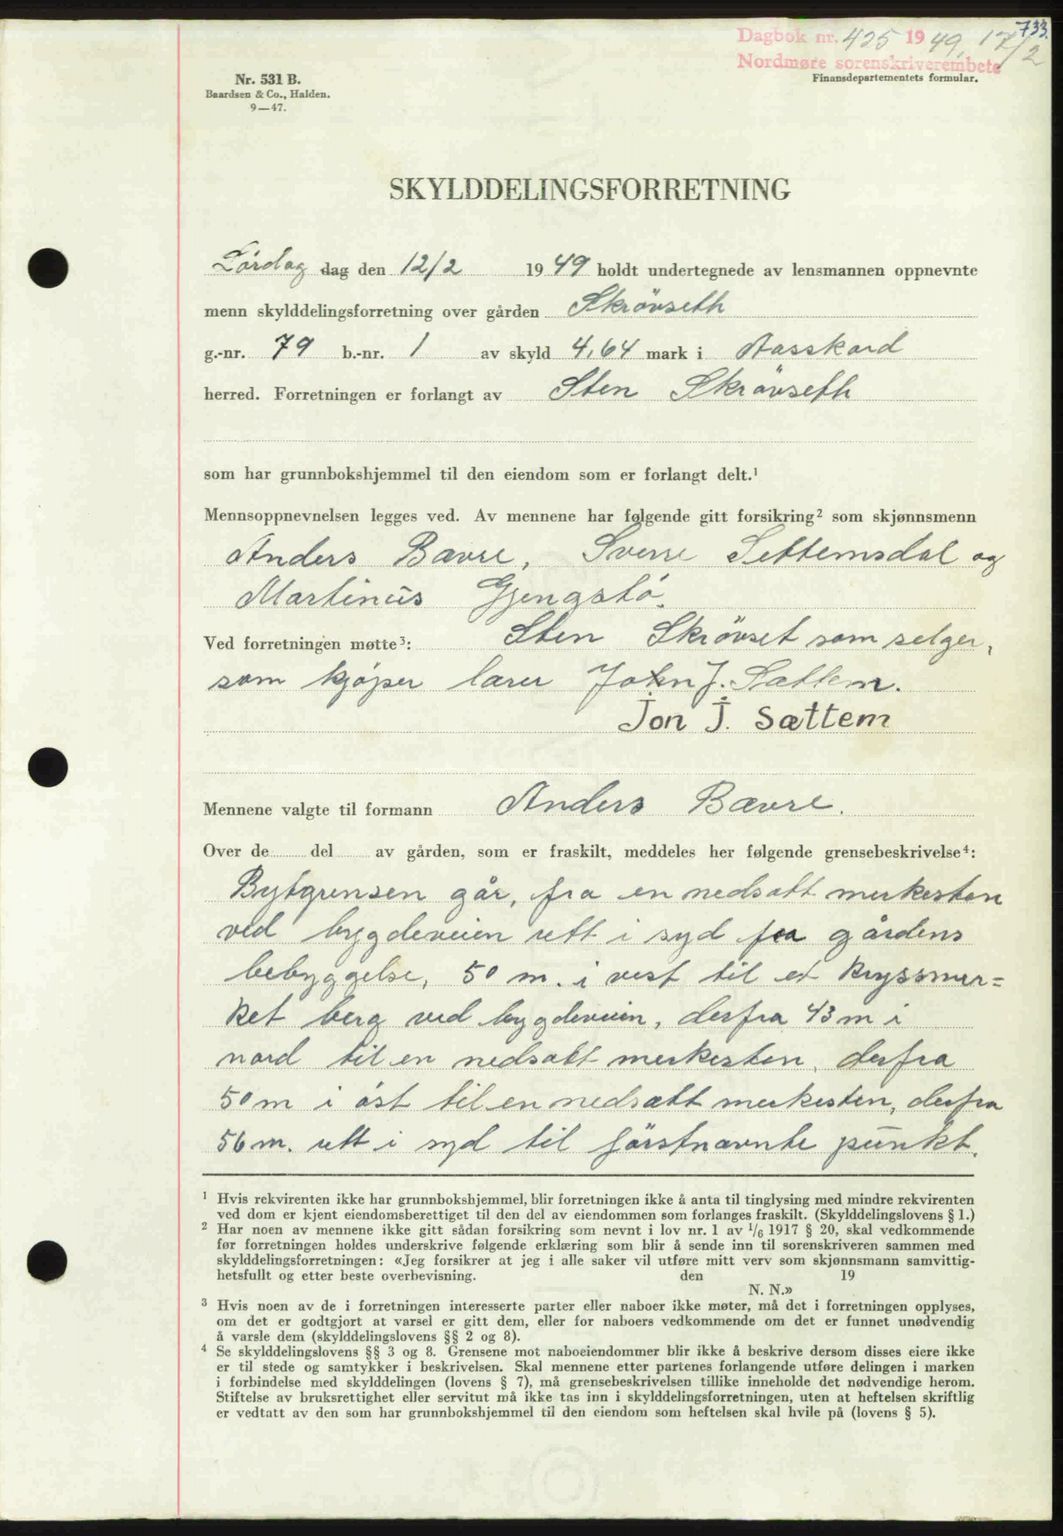 733.
Dagbok nr. 425 1949, 17/2
Nordmøre sorenskriverembete
Nr. 531 B.
Baardsen & Co., Halden.
9—47.
Finansdepartementets formular.
SKYLDDELINGSFORRETNING
Lördag dag den 12/2 1949 holdt undertegnede av lensmannen oppnevnte
menn skylddelingsforretning over gården Skrövseth
g.-nr. 79 b.-nr. 1 av skyld 4,64 mark i Aasskard
herred. Forretningen er forlangt av Sten Skrövseth
som har grunnbokshjemmel til den eiendom som er forlangt delt.¹
Mennsoppnevnelsen legges ved. Av mennene har følgende gitt forsikring² som skjønnsmenn
Anders Bævre, Sverre Settemsdal og
Martinus Gjengstö.
Ved forretningen møtte³: Sten Skrövset som selger,
som kjöper lærer John J. Sættem.
Jon J. Sættem
Mennene valgte til formann Anders Bævre.
Over de del av gården, som er fraskilt, meddeles her følgende grensebeskrivelse⁴:
Bytgrensen går, fra en nedsatt merkesten
ved bygdeveien rett i syd fra gårdens
bebyggelse, 50 m. i vest til et kryssmer=
ket berg ved bygdeveien, derfra 43 m i
nord til en nedsatt merkesten, derfra
50 m i öst til en nedsatt merkesten, derfra
56 m. rett i syd til förstnævnte punkt.
¹ Hvis rekvirenten ikke har grunnbokshjemmel, blir forretningen ikke å anta til tinglysing med mindre rekvirenten
ved dom er kjent eiendomsberettiget til den del av eiendommen som forlanges fraskilt. (Skylddelingslovens § 1.)
² Har noen av mennene ikke gitt sådan forsikring som nevnt i lov nr. 1 av 1/6 1917 § 20, skal vedkommende
før forretningen holdes underskrive følgende erklæring som blir å sende inn til sorenskriveren sammen med
skylddelingsforretningen: «Jeg forsikrer at jeg i alle saker vil utføre mitt verv som skjønnsmann samvittig-
hetsfullt og etter beste overbevisning. den 19
N. N.»
³ Hvis noen av de i forretningen interesserte parter eller naboer ikke møter, må det i forretningen opplyses,
om det er godtgjort at varsel er gitt dem, eller for naboers vedkommende om det er funnet unødvendig
å varsle dem (skylddelingslovens §§ 2 og 8).
⁴ Se skylddelingslovens §§ 3 og 8. Grensene mot naboeiendommer blir ikke å beskrive dersom disses eiere ikke
er til stede og samtykker i beskrivelsen. Skal mennene etter partenes forlangende utføre delingen i marken
i forbindelse med skylddelingen (lovens § 7), må grensebeskrivelsen tillike inneholde det nødvendige herom.
Stiftelse av bruksrettighet eller servitut må ikke tas inn i skylddelingsforretningen, uten at heftelsen skriftlig
er vedtatt av den som har grunnbokshjemmel til den eiendom som heftelsen skal hvile på (lovens § 5).